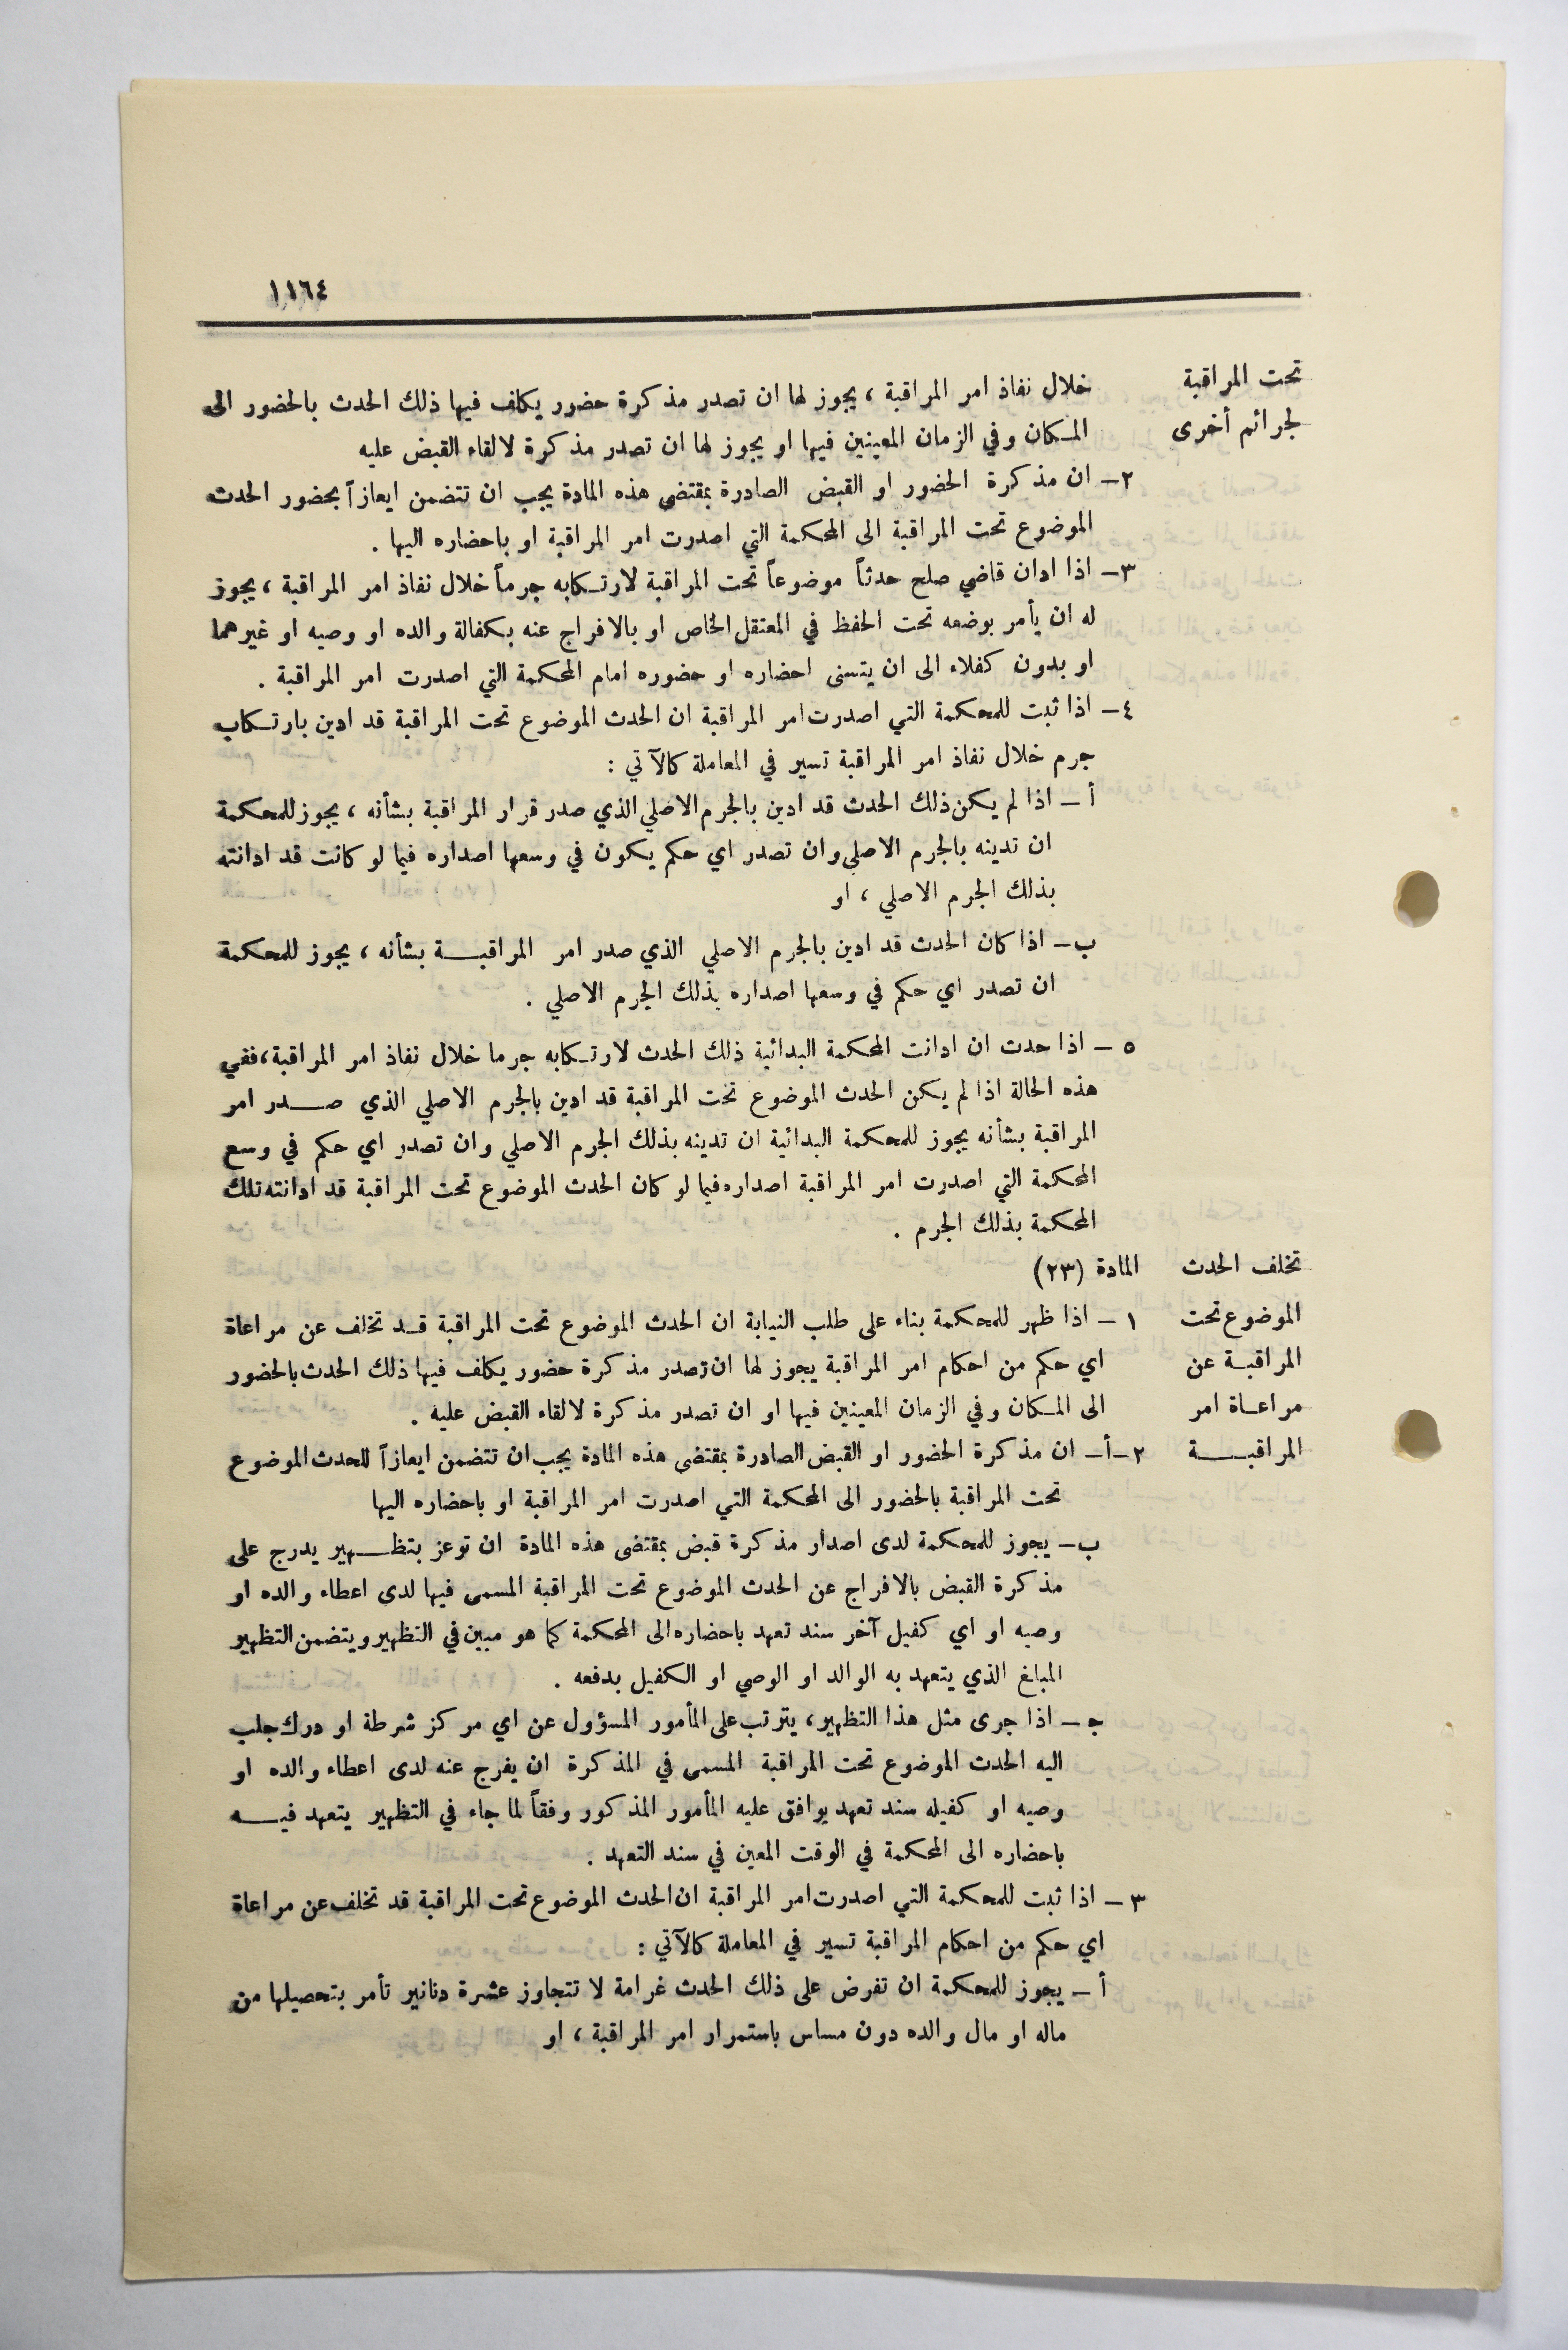 ١١٦٤
تحت المراقبة
لجرائم أخرى
خلال نفاذ امر المراقبة ، يجوز لها ان تصدر مذكرة حضور يكلف فيها ذلك الحدث بالحضور الى
المكان وفي الزمان المعينين فيها او يجوز لها ان تصدر مذكرة لالقاء القبض عليه
٢ــ ان مذكرة الحضور او القبض الصادرة بمقتضى هذه المادة يجب ان تتضمن ايعازاً بحضور الحدث
الموضوع تحت المراقبة الى المحكمة التي اصدرت امر المراقبة او باحضاره اليها .
٣ــ اذا ادان قاضي صلح حدثاً موضوعاً تحت المراقبة لارتكابه جرماً خلال نفاذ امر المراقبة ، يجوز
له ان يأمر بوضعه تحت الحفظ في المعتقل الخاص او بالافراج عنه بكفالة والده او وصيه او غيرهما
او بدون كفلاء الى ان يتسنى احضاره او حضوره امام المحكمة التي اصدرت امر المراقبة .
٤ــ اذا ثبت للمحكمة التي اصدرت امر المراقبة ان الحدث الموضوع تحت المراقبة قد ادين بارتكاب
جرم خلال نفاذ امر المراقبة تسير في المعاملة كالآتي :
أ ــ اذا لم يكن ذلك الحدث قد ادين بالجرم الاصلي الذي صدر قرار المراقبة بشأنه ، يجوز للمحكمة
ان تدينه بالجرم الاصلي وان تصدر اي حكم يكون في وسعها اصداره فيما لو كانت قد ادانته
بذلك الجرم الاصلي ، او
ب ــ اذا كان الحدث قد ادين بالجرم الاصلي الذي صدر امر المراقبة بشأنه ، يجوز للمحكمة
ان تصدر اي حكم في وسعها اصداره بذلك الجرم الاصلي .
٥ ــ اذا حدث ان ادانت المحكمة البدائية ذلك الحدث لارتكابه جرما خلال نفاذ امر المراقبة، ففي
هذه الحالة اذا لم يكن الحدث الموضوع تحت المراقبة قد ادين بالجرم الاصلي الذي صدر امر
المراقبة بشأنه يجوز للمحكمة البدائية ان تدينه بذلك الجرم الاصلي وان تصدر اي حكم في وسع
المحكمة التي اصدرت امر المراقبة اصداره فيما لو كان الحدث الموضوع تحت المراقبة قد ادانته تلك
المحكمة بذلك الجرم .
تخلف الحدث
الموضوع تحت
المراقبة عن
مراعاة امر
المراقبة
المادة (٢٣)
١ ــ اذا ظهر للمحكمة بناء على طلب النيابة ان الحدث الموضوع تحت المراقبة قد تخلف عن مراعاة
اي حكم من احكام امر المراقبة يجوز لها ان تصدر مذكرة حضور يكلف فيها ذلك الحدث بالحضور
الى المكان وفي الزمان المعينين فيها او ان تصدر مذكرة لالقاء القبض عليه .
٢ــأــ ان مذكرة الحضور او القبض الصادرة بمقتضى هذه المادة يجب ان تتضمن ايعازاً للحدث الموضوع
تحت المراقبة بالحضور الى المحكمة التي اصدرت امر المراقبة او باحضاره اليها
ب ــ يجوز للمحكمة لدى اصدار مذكرة قبض بمقتضى هذه المادة ان توعز بتظهير يدرج على
مذكرة القبض بالافراج عن الحدث الموضوع تحت المراقبة المسمى فيها لدى اعطاء والده او
وصيه او اي كفيل آخر سند تعهد باحضاره الى المحكمة كما هو مبين في التظهير ويتضمن التظهير
المبلغ الذي يتعهد به الوالد او الوصي او الكفيل بدفعه .
ج ــ اذا جرى مثل هذا التظهير، يترتب على المأمور المسؤول عن اي مركز شرطة او درك جلب
اليه الحدث الموضوع تحت المراقبة المسمى في المذكرة ان يفرج عنه لدى اعطاء والده او
وصيه او كفيله سند تعهد يوافق عليه المأمور المذكور وفقاً لما جاء في التظهير يتعهد فيه
باحضاره الى المحكمة في الوقت المعين في سند التعهد .
٣ ــ اذا ثبت للمحكمة التي اصدرت امر المراقبة ان الحدث الموضوع تحت المراقبة قد تخلف عن مراعاة
اي حكم من احكام المراقبة تسير في المعاملة كالآتي :
أ ــ يجوز للمحكمة ان تفرض على ذلك الحدث غرامة لا تتجاوز عشرة دنانير تأمر بتحصيلها من
ماله او مال والده دون مساس باستمرار امر المراقبة ، او